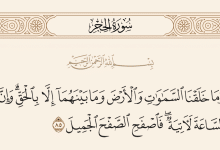 سُورَةُ الحِجْرِ
بِسْمِ اللَّهِ الرَّحْمَٰنِ الرَّحِيمِ
وَمَا خَلَقْنَا السَّمَٰوَٰتِ وَالْأَرْضَ وَمَا بَيْنَهُمَا إِلَّا بِالْحَقِّ ۗ وَإِنَّ
السَّاعَةَ لَآتِيَةٌ ۖ فَاصْفَحِ الصَّفْحَ الْجَمِيلَ ٨٥